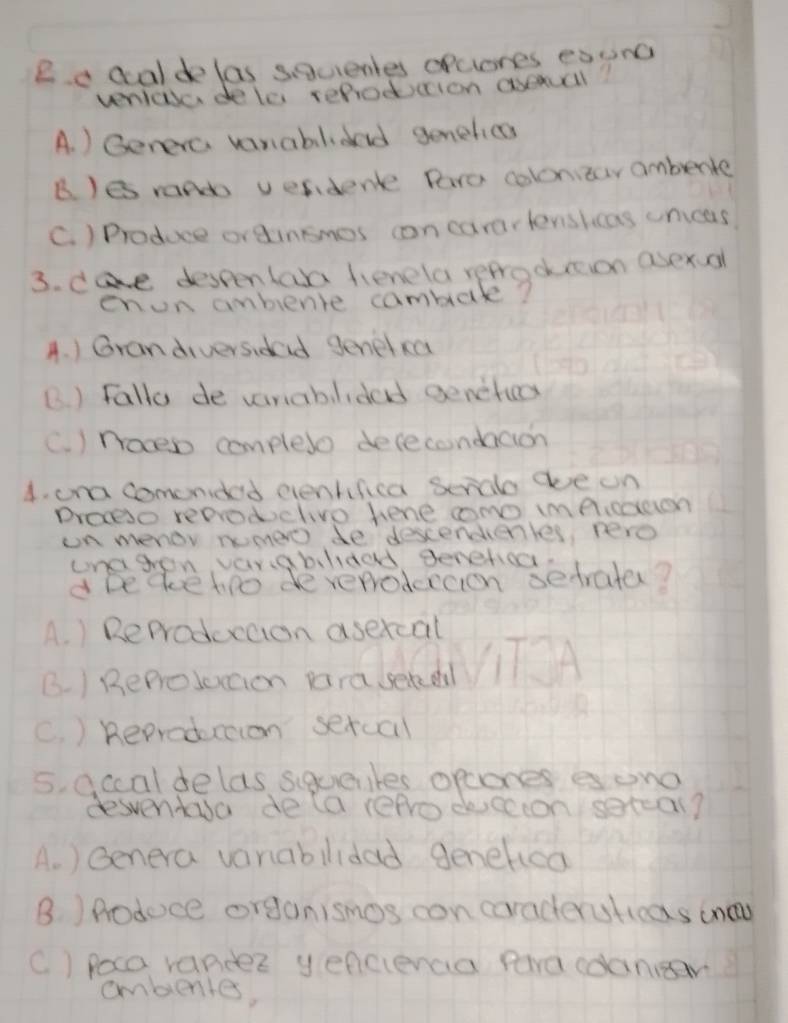 2. ¿ cual de las siguientes opciones es una
ventaja de la reproduccion asexual?
A.) Genera variabilidad genetica
B.) es rapido y eficiente Para colonizar ambiente
C.) Produce organismos con caracteristicas unicas.
3. ¿ Que desventaja tiene la reproduccion asexual
en un ambiente cambiate?
A.) Gran diversidad genética
B.) Falta de variabilidad genética
C.) Proceso complejo de fecundación
4. una comunidad cientifica señalo que un
Proceso reproductivo tiene como implicacion
un menor numero de descendientes, pero
una gran variabilidad genetica.
¿ De que tipo de reproduccion se trata?
A.) Reproduccion asexual
B.) Reproduccion para sexual
C.) Reproduccion sexual
5. ¿ cual de las siguientes opciones es una
desventaja de la reproduccion sexual?
A.) Genera variabilidad genetica
B.) Produce organismos con caracteristicas unicas
C.) Poca rapidez y eficiencia Para colonizar
ambientes.